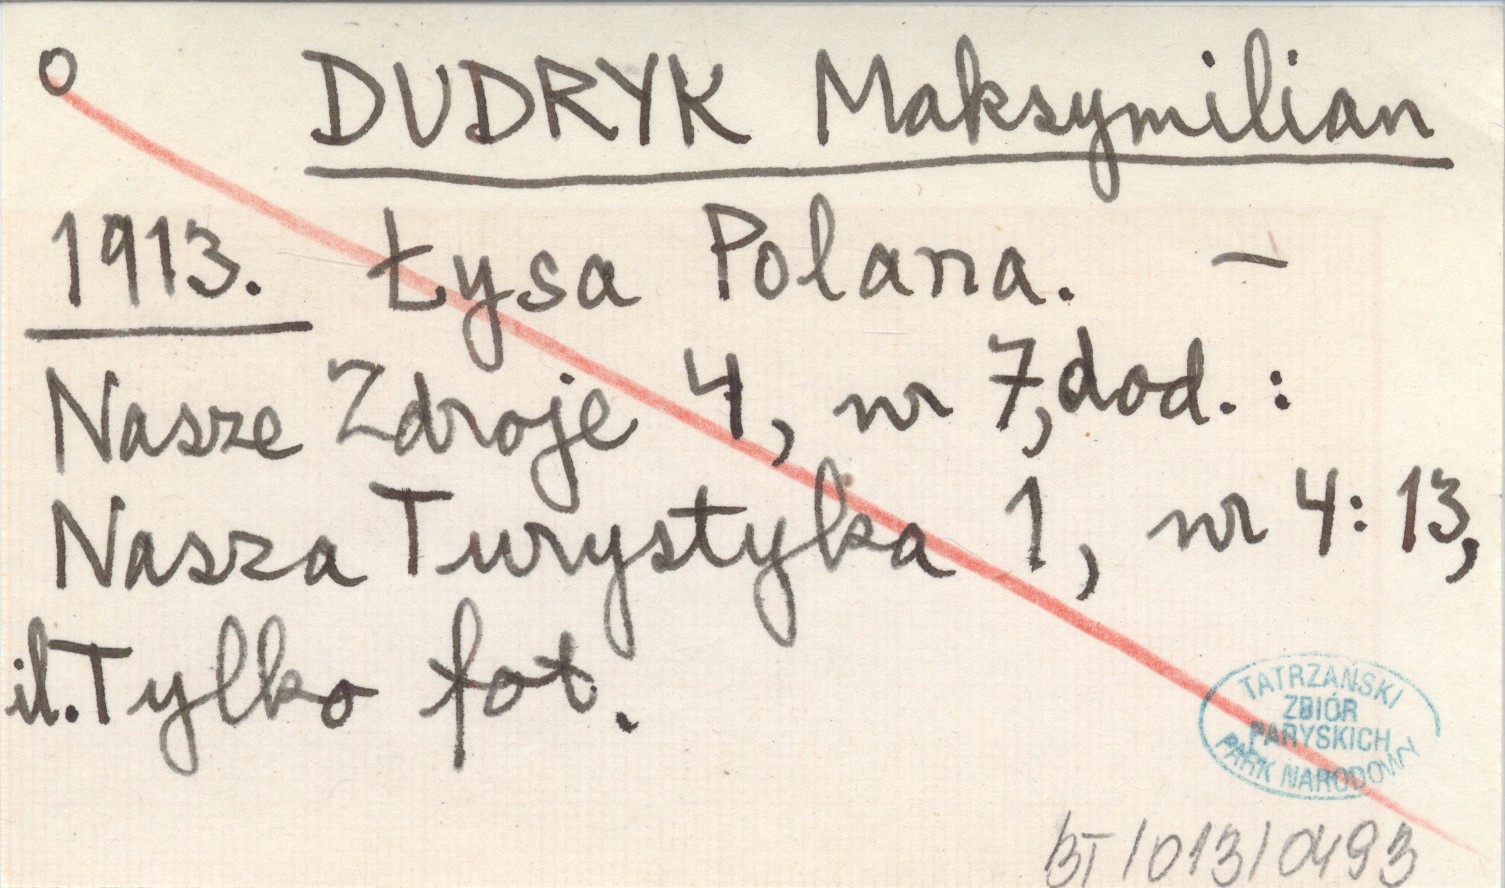 o DUDRYK Maksymilian
1913. Łysa Polana. –
Nasze Zdroje 4, nr 7, dod.:
Nasza Turystyka 1, nr 4: 13,
il. Tylko fot.
TATRZAŃSKI
ZBIÓR
PARYSKICH
PARK NARODOWY
BT/013/0493